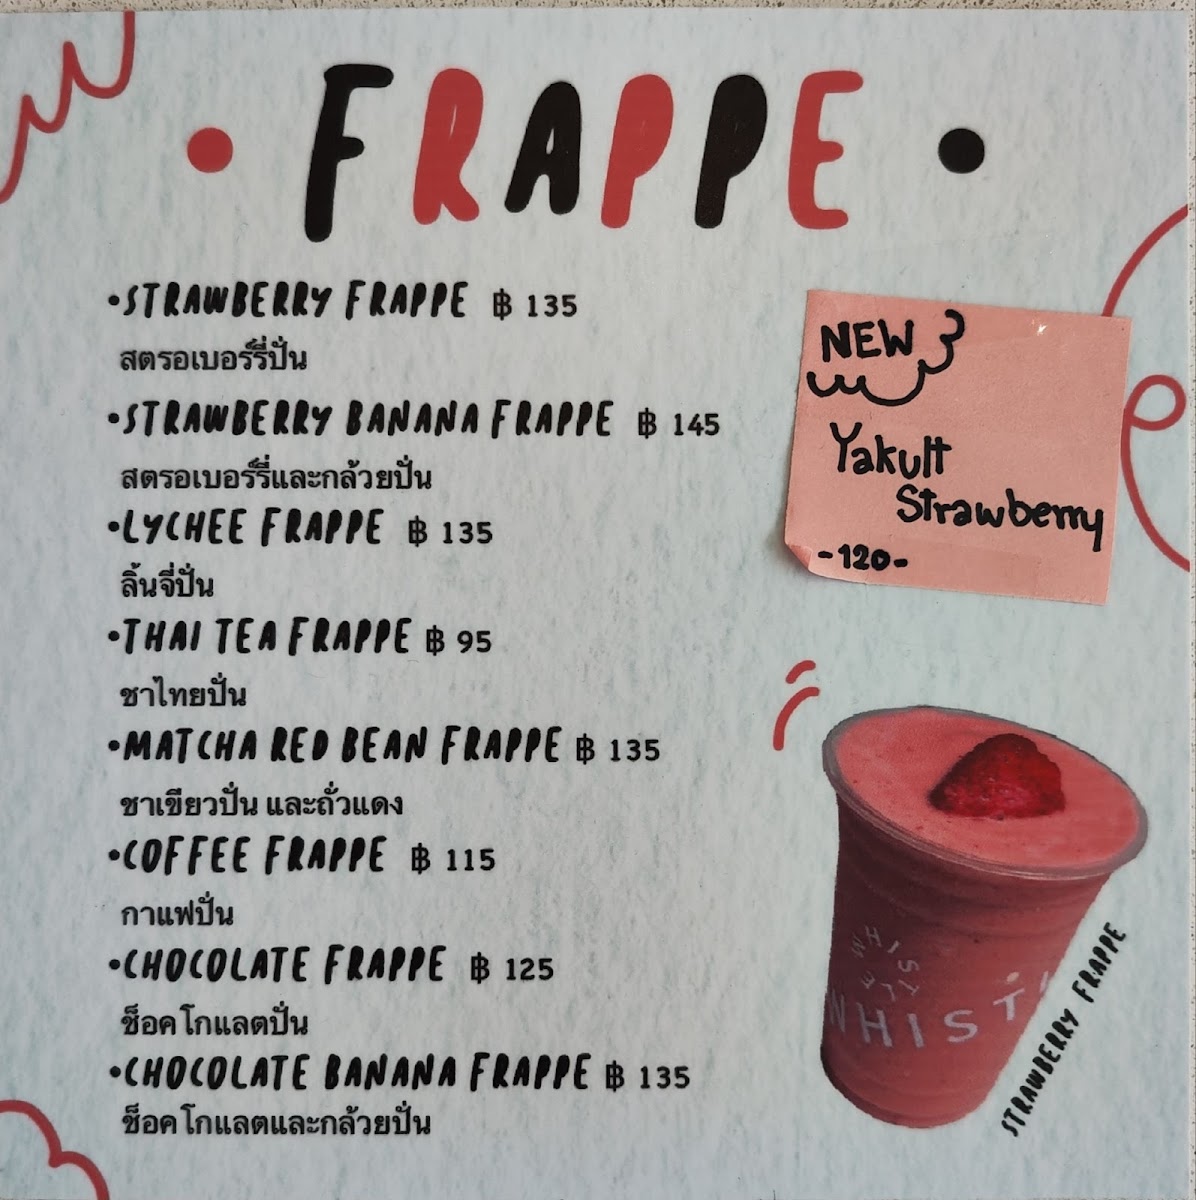 • FRAPPE •
•STRAWBERRY FRAPPE ฿ 135
สตรอเบอร์รี่ปั่น
•STRAWBERRY BANANA FRAPPE ฿ 145
สตรอเบอร์รี่และกล้วยปั่น
•LYCHEE FRAPPE ฿ 135
ลิ้นจี่ปั่น
•THAI TEA FRAPPE ฿ 95
ชาไทยปั่น
•MATCHA RED BEAN FRAPPE ฿ 135
ชาเขียวปั่น และถั่วแดง
•COFFEE FRAPPE ฿ 115
กาแฟปั่น
•CHOCOLATE FRAPPE ฿ 125
ช็อคโกแลตปั่น
•CHOCOLATE BANANA FRAPPE ฿ 135
ช็อคโกแลตและกล้วยปั่น
NEW
Yakult
Strawberry
-120-
WHIST
STRAWBERRY FRAPPE